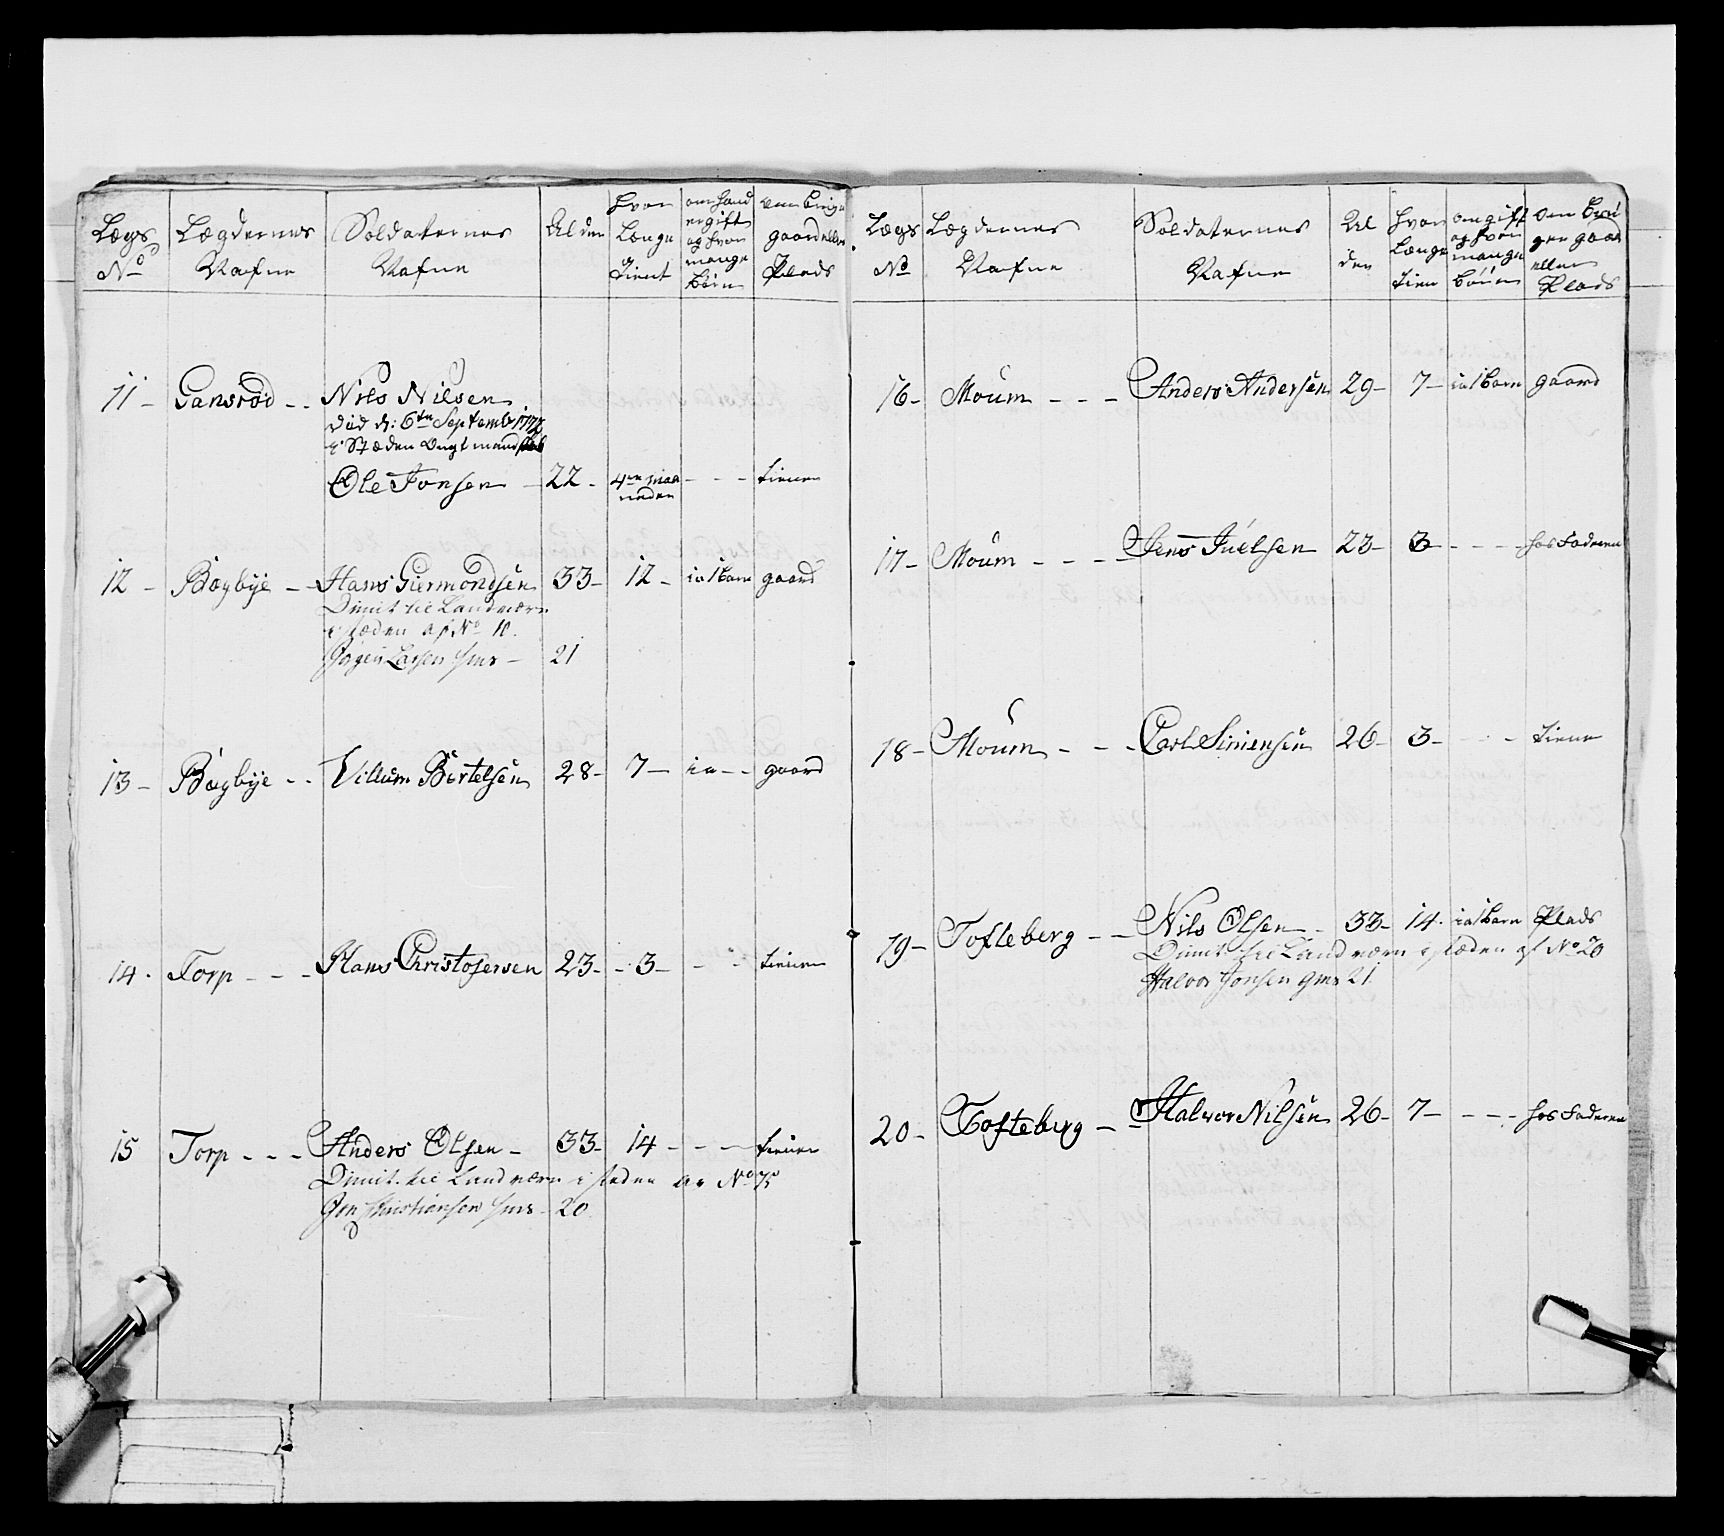 Lægs
No
Lægdernes
Nafne
Soldaternes
Nafne
Alder
hvor
Længe
tient
om hand
er gift
og hvor
mange
børn
om bruger
gaard eller
Plads
11 - Gansrød - - Nils Nilsen
død d: 6te Septemb 1772
i Stæden Ungt mandskab
Ole Jonsen - 22 - 4re maa - - - tiener
neder
12 - Bøgbÿe - - Hans Giermondsen 33 - 12 - ia 1 barn gaard
Dimit til Landværn
i stæden af No 10.
Jørgen Larsen hus - 21
13 - Bøgbÿe - - Villum Bertelsen 28 - 7 - ia - - gaard
14 - Torp - - - Hans Christofersen 23 - - 3 - - - tiener
15 Torp - - - Anders Olsen - 33 - 14 - - - tiener
Dimit til Landværn i steden av No 75
Jon Christiansen hus - 20
Lægs
No
Lægdernes
Nafne
Soldaternes
Nafne
Al
der
hvor
Længe
tien
om gift
og hvor
mange
børn
om bru
ger gaar
eller
Plads
16 - Moum - - - Anders Andersen 29 - 7 - ia 1 barn gaard
17 - Moum - - - - Jens Juelsen 23 - 3 - - - - hos Faderen
18 - Moum - - - Carl Simensen 26 - 3 - - - - tiener
19 - Tofteberg - - Nils Olsen - 33 - 14 - ia 1 barn Plads
Dimit til Landværn i stæden af No 20
Halvor Jonsen gms 21
20 - Tofteberg - Halvor Nilsen 26 - 7 - - - - hos Faderen